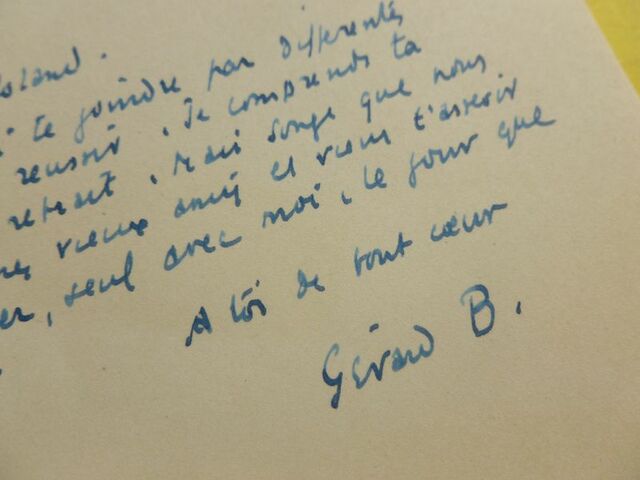 oland.
te joindre par différentes
reussir. Je comprends ta
retrait. Mais songe que nous
vieux amis et viens t'asseoir
er, seul avec moi, le jour que
A toi de tout cœur
Gérard B.